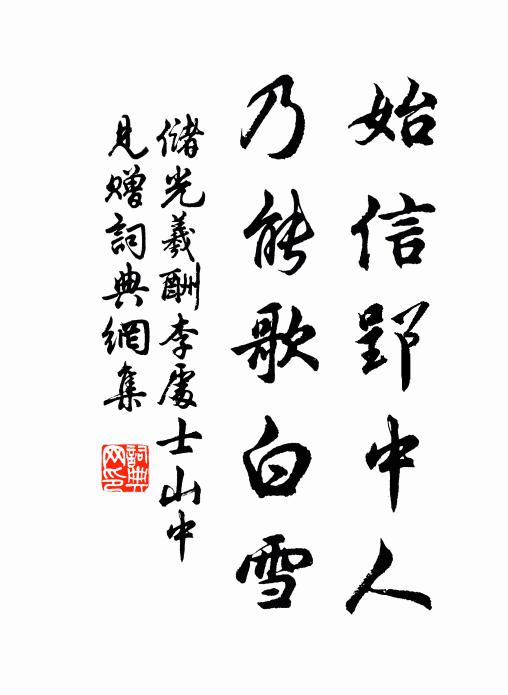 始信郢中人
乃能歌白雪
儲光羲酬李處士山中
見贈詞典網集
詞典
网印